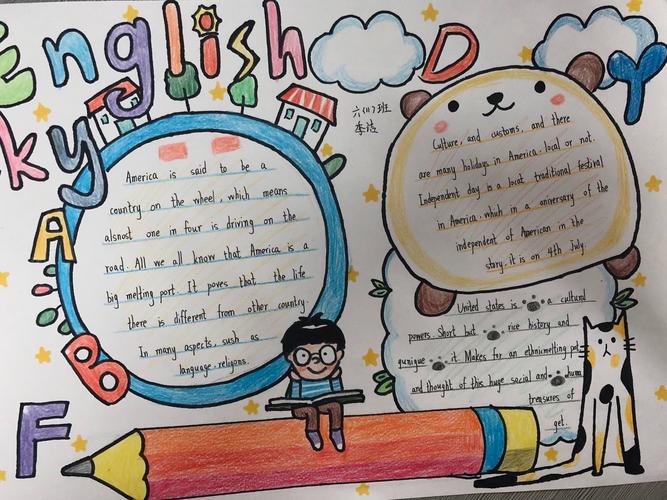 English
D
Y
ky
六(1)班
李洁
A
B
F
America is said to be a
country on the wheel, which means
alsnost one in four is driving on the
road. All we all know that America is a
big melting port. It poves that the life
there is different from other country.
In many aspects, sush as
language, religons.
Culture, and customs, and there
are many holidays in America. local or not.
Independent day is a locat traditional festival
in America, whith in a aniversary of the
independent of American in the
story. it is on 4th July.
United states is a cultural
powers. Short but rice history and
qunigue it. Makes for an ethnicmelting pot,
and thought of this huge social and hum
treasures of
get.